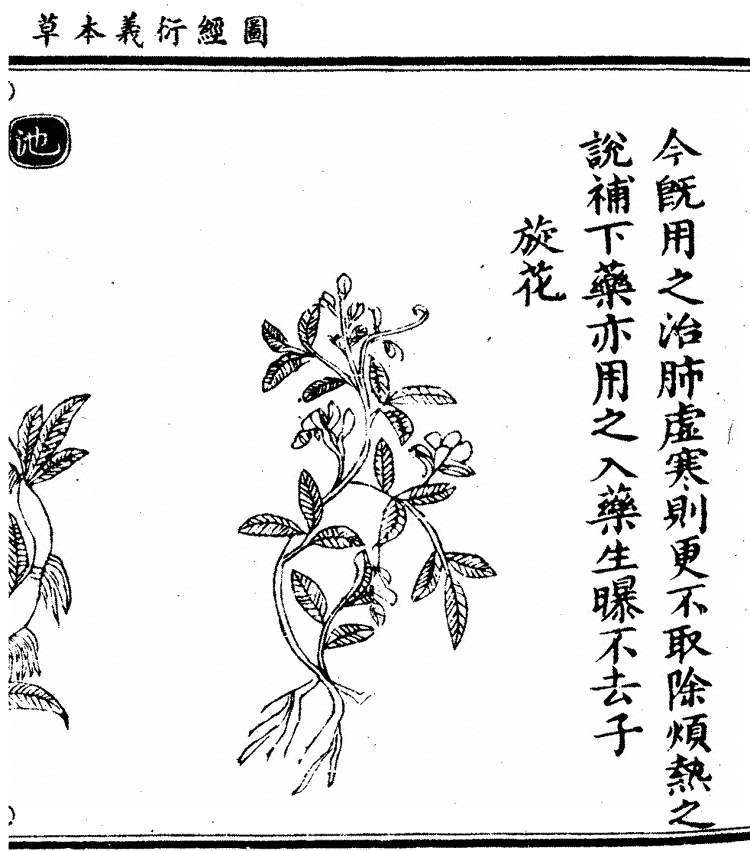 圖經衍義本草
今既用之治肺虛寒則更不取除煩熱之
說補下藥亦用之入藥生曝不去子
旋花
池